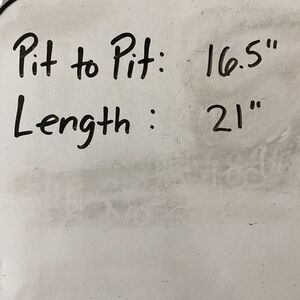 Pit to Pit: 16.5"
Length : 21"